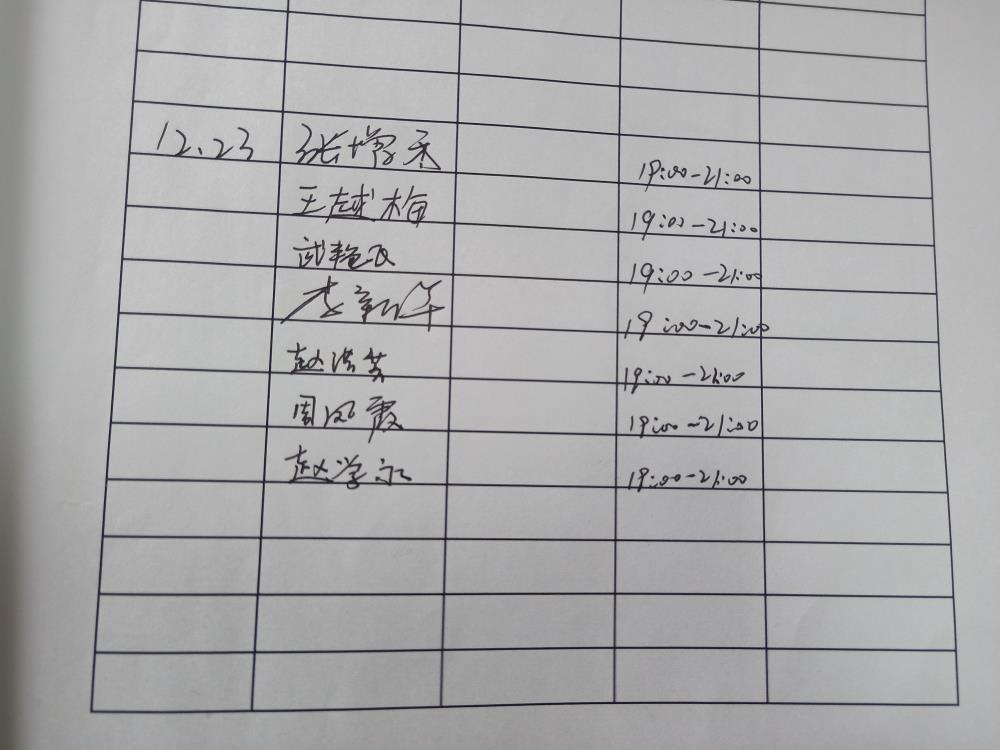 12.23 张增禾 19:00-21:00
王越梅 19:00-21:00
武艳及 19:00-21:00
李新华 19:00-21:00
赵洪英 19:00-21:00
周凤霞 19:00-21:00
赵学永 19:00-21:00